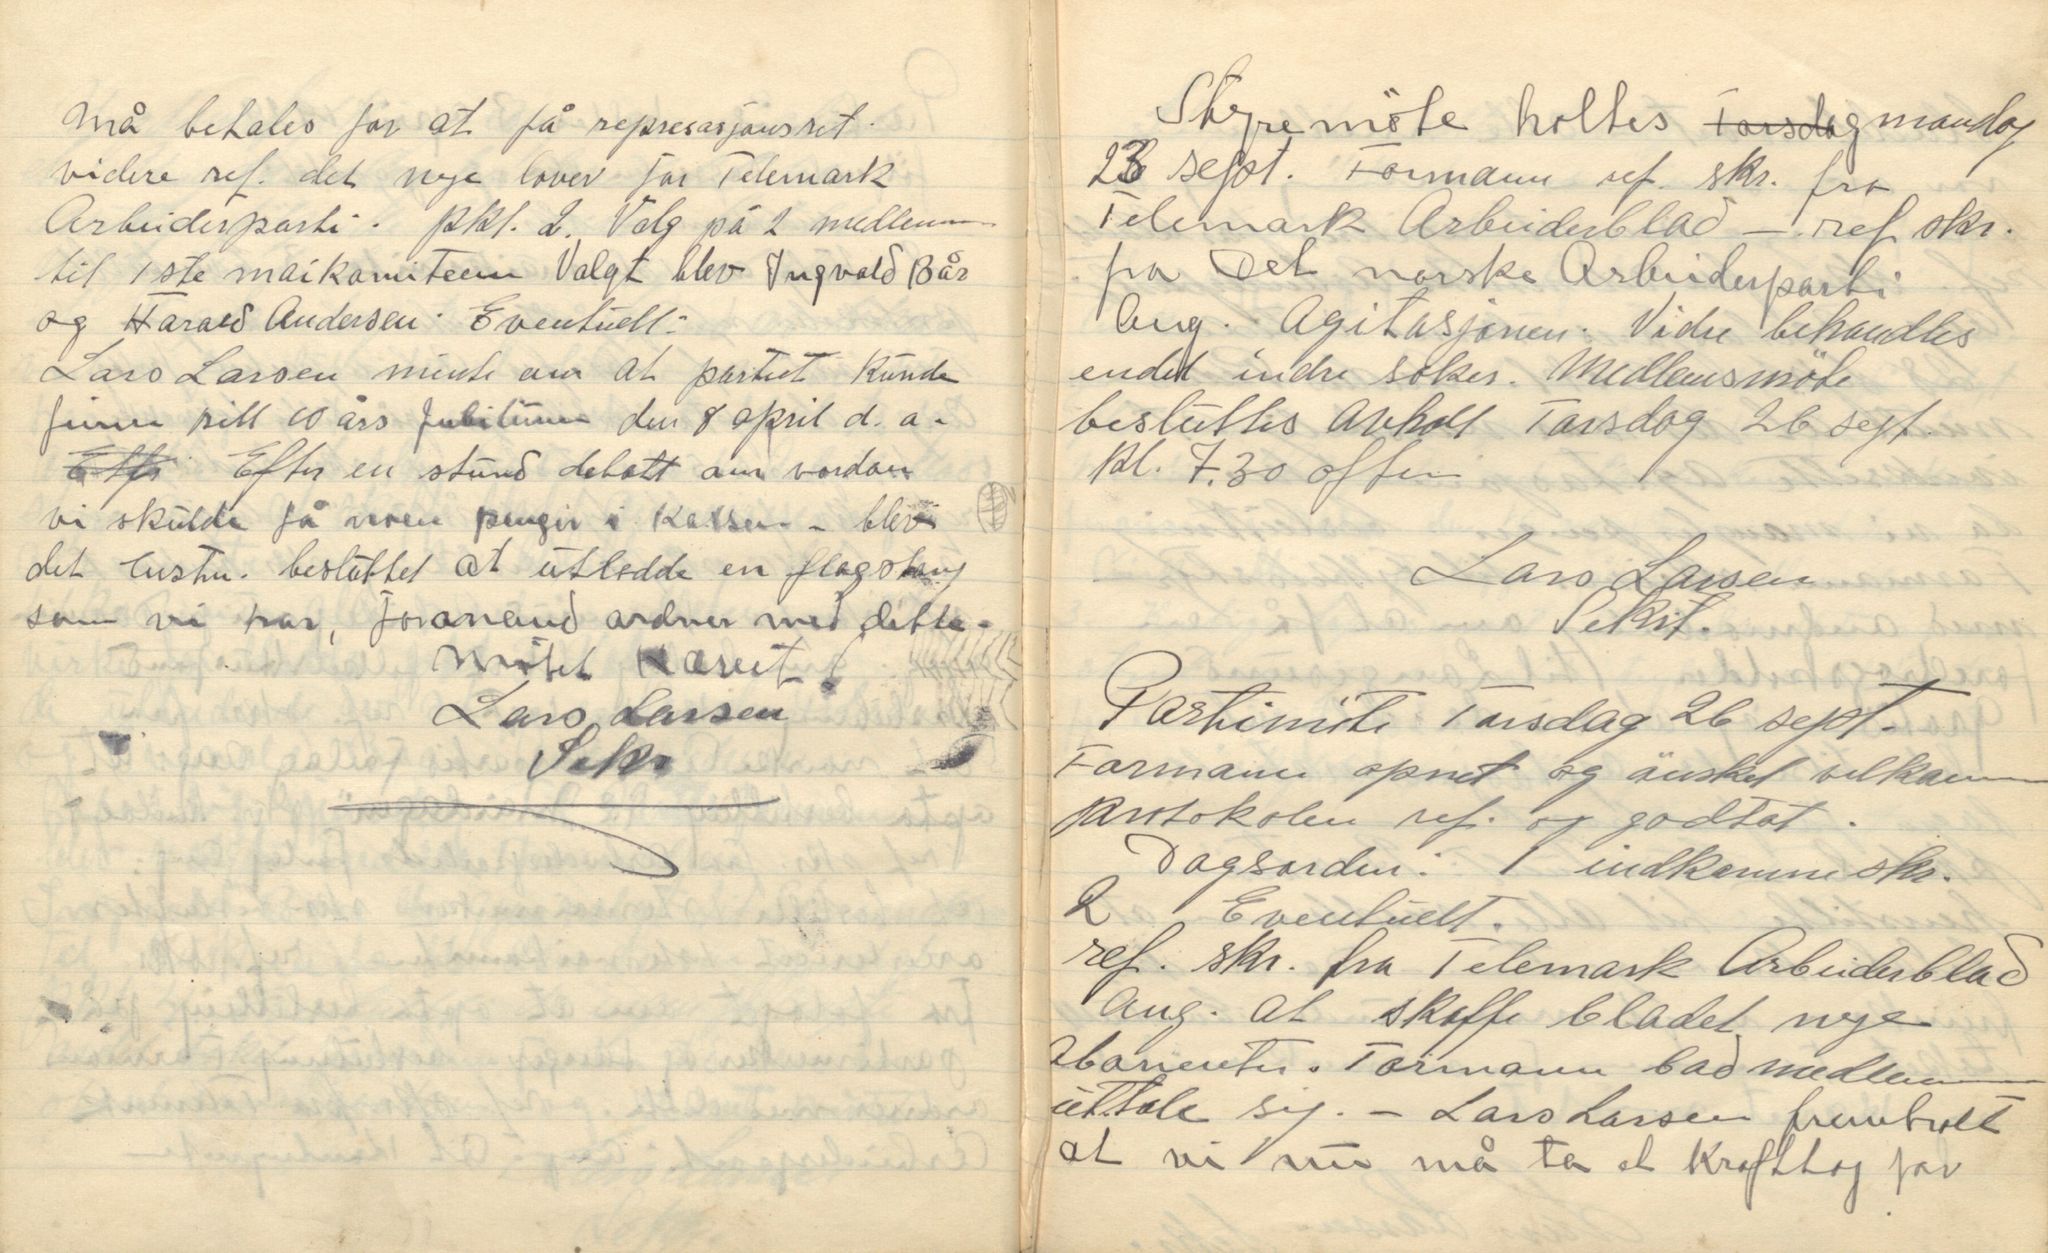 må betales for at få represasjonsret.
videre ref. det nye lover for Telemark
Arbeiderparti. pkt. 2. Valg på 2 medlemm
til 1ste maikomiteen Valgt blev Yngvald Bår
og Harald Andersen. Eventuelt:
Lars Larsen minte om at partiet kunde
feire sitt 10 års Jubileum den 8 april d. a.
Efter Efter en stund debatt om vordan
vi skulde få noen penger i kassen - blev
det besluttet at utlodde en flagstang
som vi har, formand ordner med dette.
Møtet Hævet!
Lars Larsen
Sekr
Styremöte holtes Torsdag mandag
23 sept. Formann ref. skr. fra
Telemark Arbeiderblad - ref skr.
fra Det norske Arbeiderparti
Ang. Agitasjonen. Vidre behandles
endel indre saker. Medlemsmöte
besluttes avholt Torsdag 26 sept.
kl. 7.30 often
Lars Larsen
Sekrt.
Partimöte Torsdag 26 sept.
Formann opnet og önsket velkomm
protokolen ref. og godtat.
Dagsorden: 1 indkomne skr.
2 Eventuelt.
ref. skr. fra Telemark Arbeiderblad
Ang. at skaffe bladet nye
abonenter. Formann bad medlemm
uttale sig. - Lars Larsen fremholt
at vi nu må ta et krafttog for